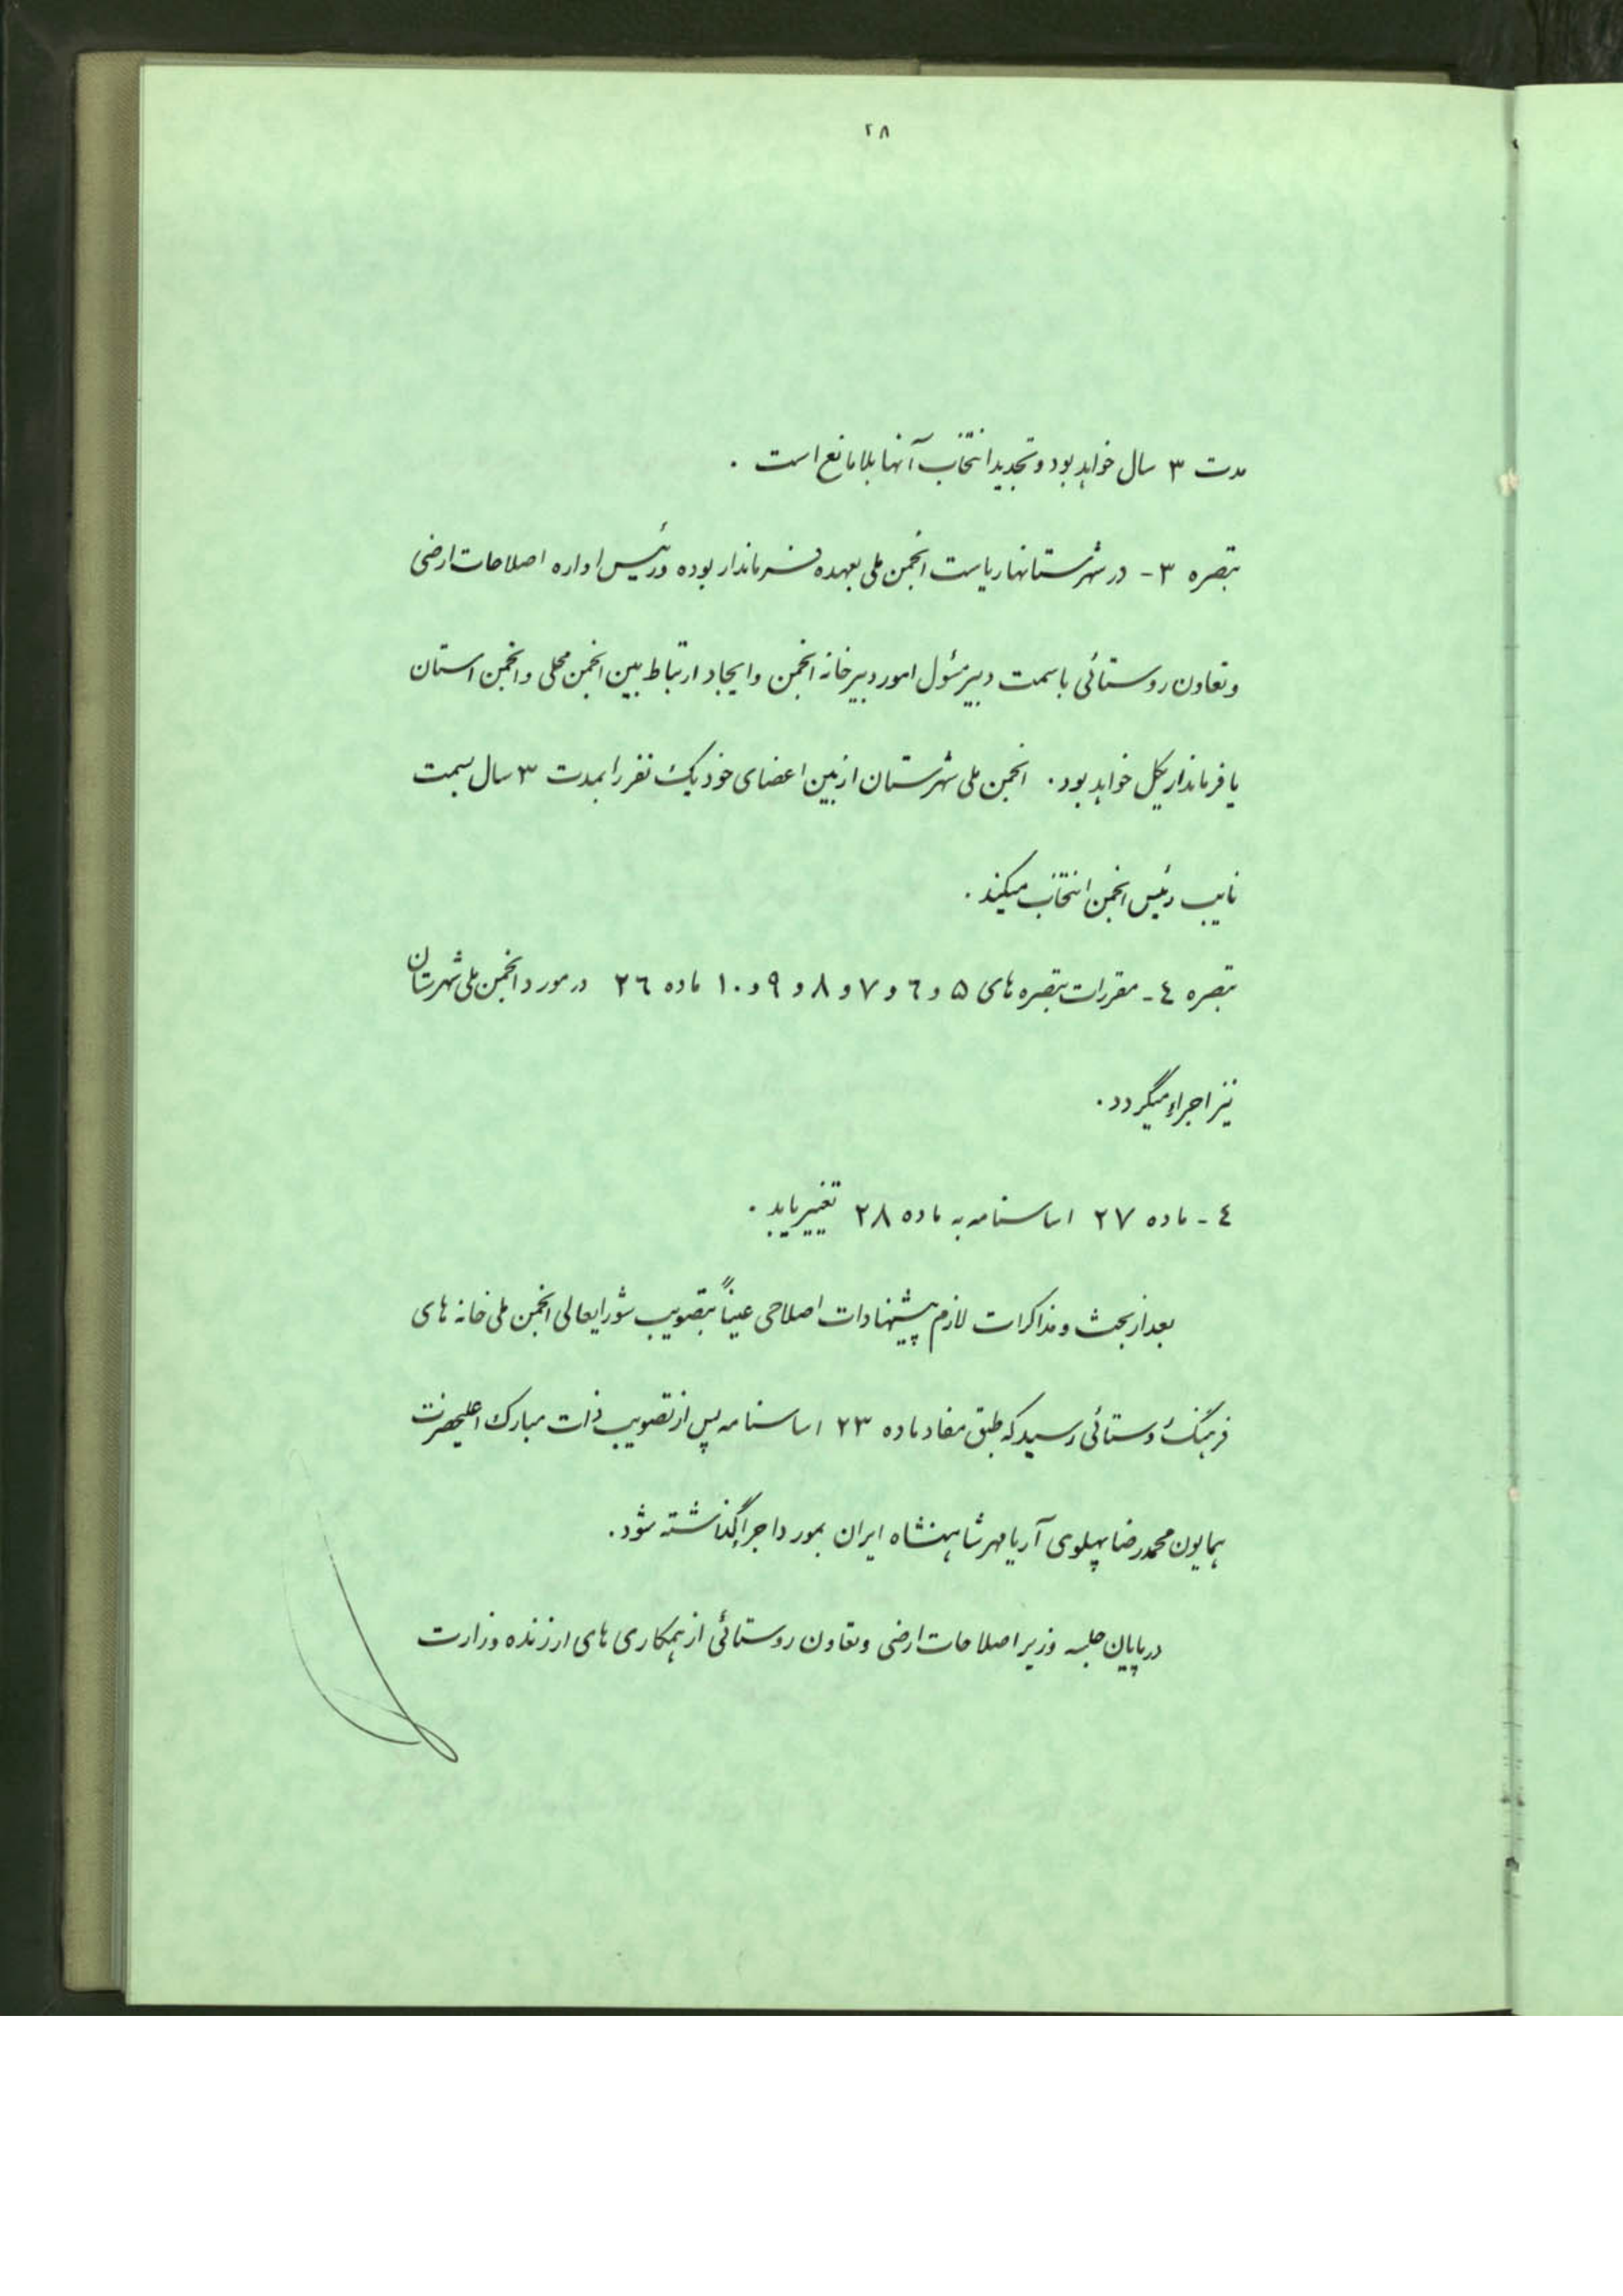 ۲۸
مدت ۳ سال خواهد بود و تجدید انتخاب آنها بلامانع است .
تبصره ۳ - در شهرستانها ریاست انجمن ملی بعهده فرماندار بوده و رئیس اداره اصلاحات ارضی
و تعاون روستائی با سمت دبیر مسئول امور دبیرخانه انجمن و ایجاد ارتباط بین انجمن محلی و انجمن استان
یا فرمانداریکل خواهد بود . انجمن ملی شهرستان از بین اعضای خود یک نفر را بمدت ۳ سال بسمت
نایب رئیس انجمن انتخاب میکند .
تبصره ٤ - مقررات تبصره های ۵ و ٦ و ۷ و ۸ و ۹ و ۱۰ ماده ۲٦ در مورد انجمن ملی شهرستان
نیز اجراء میگردد .
٤ - ماده ۲۷ اساسنامه به ماده ۲۸ تغییر یابد .
بعد از بحث و مذاکرات لازم پیشنهادات اصلاحی عیناً بتصویب شورایعالی انجمن ملی خانه های
فرهنگ روستائی رسید که طبق مفاد ماده ۲۳ اساسنامه پس از تصویب ذات مبارک اعلیحضرت
همایون محمدرضا پهلوی آریامهر شاهنشاه ایران بمورد اجرا گذاشته شود .
در پایان جلسه وزیر اصلاحات ارضی و تعاون روستائی از همکاری های ارزنده وزارت